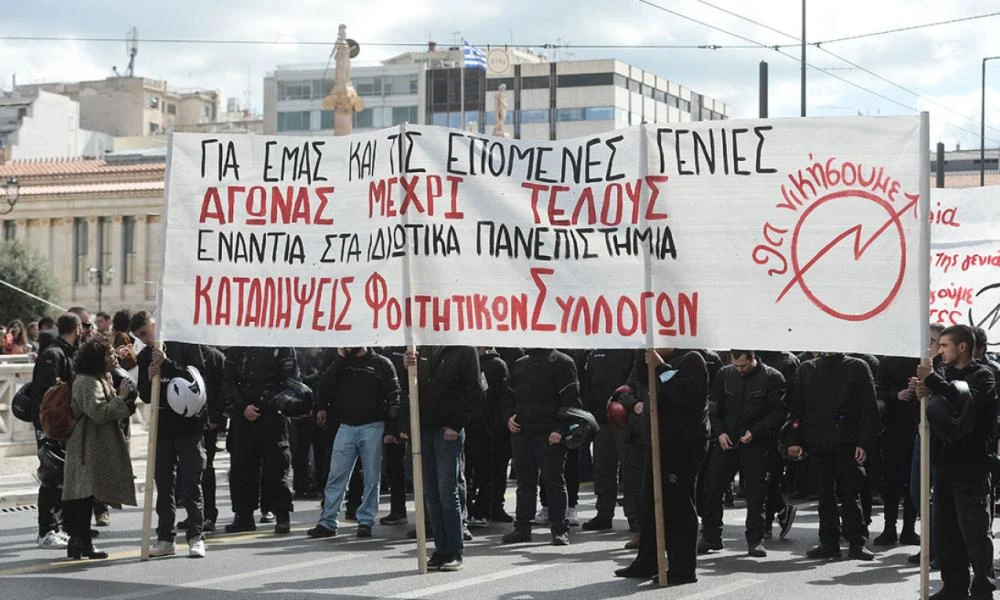 ΓΙΑ ΕΜΑΣ ΚΑΙ ΤΙΣ ΕΠΟΜΕΝΕΣ ΓΕΝΙΕΣ
ΑΓΩΝΑΣ ΜΕΧΡΙ ΤΕΛΟΥΣ
ΕΝΑΝΤΙΑ ΣΤΑ ΙΔΙΩΤΙΚΑ ΠΑΝΕΠΙΣΤΗΜΙΑ
ΚΑΤΑΛΗΨΕΙΣ ΦΟΙΤΗΤΙΚΩΝ ΣΥΛΛΟΓΩΝ
θα νικήσουμε
της γενιά